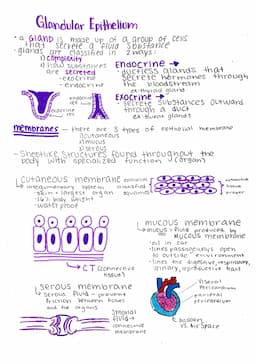 Glandular Epithelium
• a GLAND is made up of a group of cells
that secrete a fluid substance
• glands are classified in 2 ways:
1) complexity
2) how substances
are secreted
- exocrine
- endocrine
Endocrine →
• ductless glands that
secrete hormones through
the bloodstream
ex: thyroid gland
Exocrine →
• secrete substances outward
through a duct
ex:
membranes - there are 3 types of epithelial membrane
① cutaneous
② mucous
③ serous
- Sheetlike structures found throughout the
body with specialized function (organ)
cutaneous membrane
- integumentary system
- skin = largest organ
- 16% body weight
- waterproof
→ CT (connective
tissue)
mucous membrane
↳ mucus = fluid produced by
mucous membrane
• lines passageways open
to outside environment
- lines the digestive, respiratory,
urinary, reproductive tract
serous membrane
↳ serous fluid - prevent
friction between tissues
and the organs
synovial
fluid →
connective
membrane
visceral
pericardium
parietal
pericardium